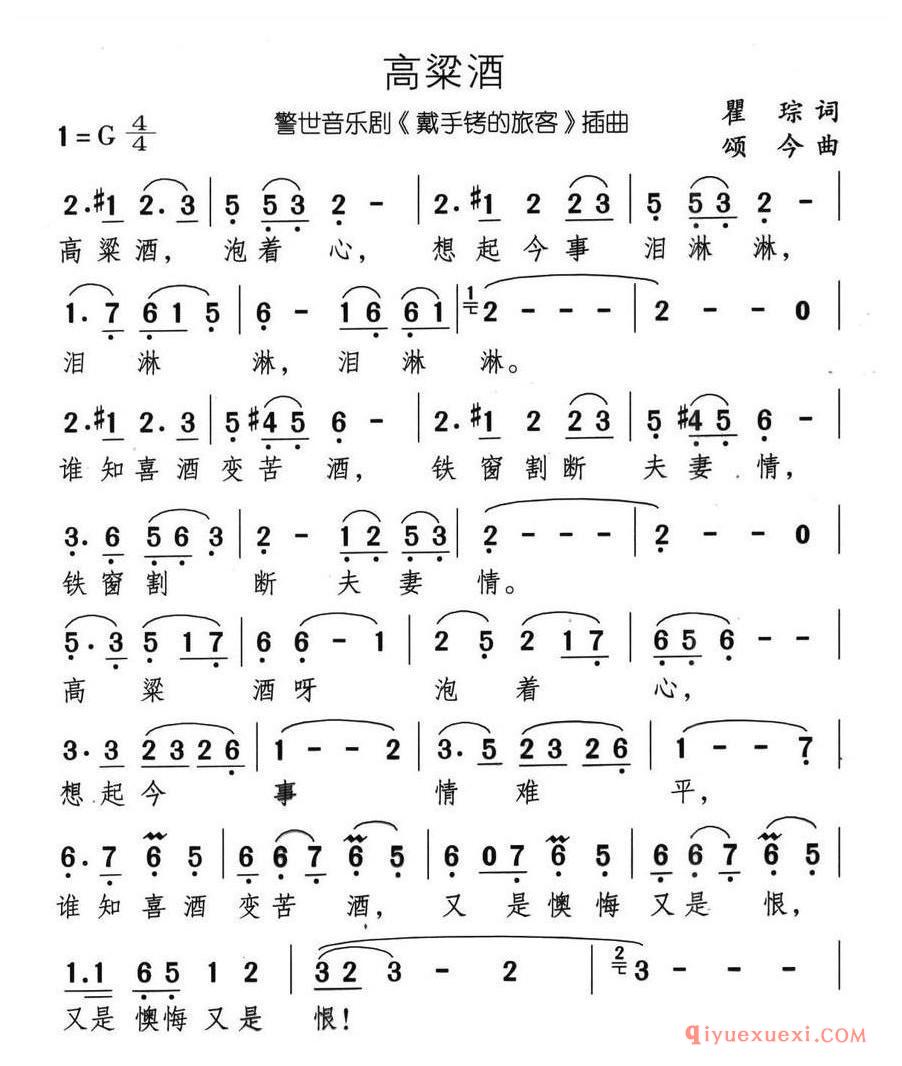 高粱酒
警世音乐剧《戴手铐的旅客》插曲
瞿 琮 词
1=G 4/4
颂 今 曲
2. #1 2. 3 | 5 5 3 2 - | 2. #1 2 2 3 | 5 5 3 2 - |
高粱酒， 泡着 心， 想起今事 泪淋 淋，
1. 7 6 1 5 | 6 - 1 6 6 1 | 1 2 - - - | 2 - - 0 |
泪 淋 淋，泪 淋 淋。
2. #1 2. 3 | 5 #4 5 6 - | 2. #1 2 2 3 | 5 #4 5 6 - |
谁知喜酒变苦 酒， 铁窗割断 夫妻 情，
3. 6 5 6 3 | 2 - 1 2 5 3 | 2 - - - | 2 - - 0 |
铁窗割 断 夫 妻 情。
5. 3 5 1 7 | 6 6 - 1 | 2 5 2 1 7 | 6 5 6 - - |
高 粱 酒呀 泡 着 心，
3. 3 2 3 2 6 | 1 - - 2 | 3. 5 2 3 2 6 | 1 - - 7 |
想起今 事 情 难 平，
6. 7 6 5 | 6 6 7 6 5 | 6 0 7 6 5 | 6 6 7 6 5 |
谁知喜酒变苦 酒， 又 是懊悔又是 恨，
1. 1 6 5 1 2 | 3 2 3 - 2 | 2 3 - - - |
又是懊悔又是 恨！
qiyuexuexi.com